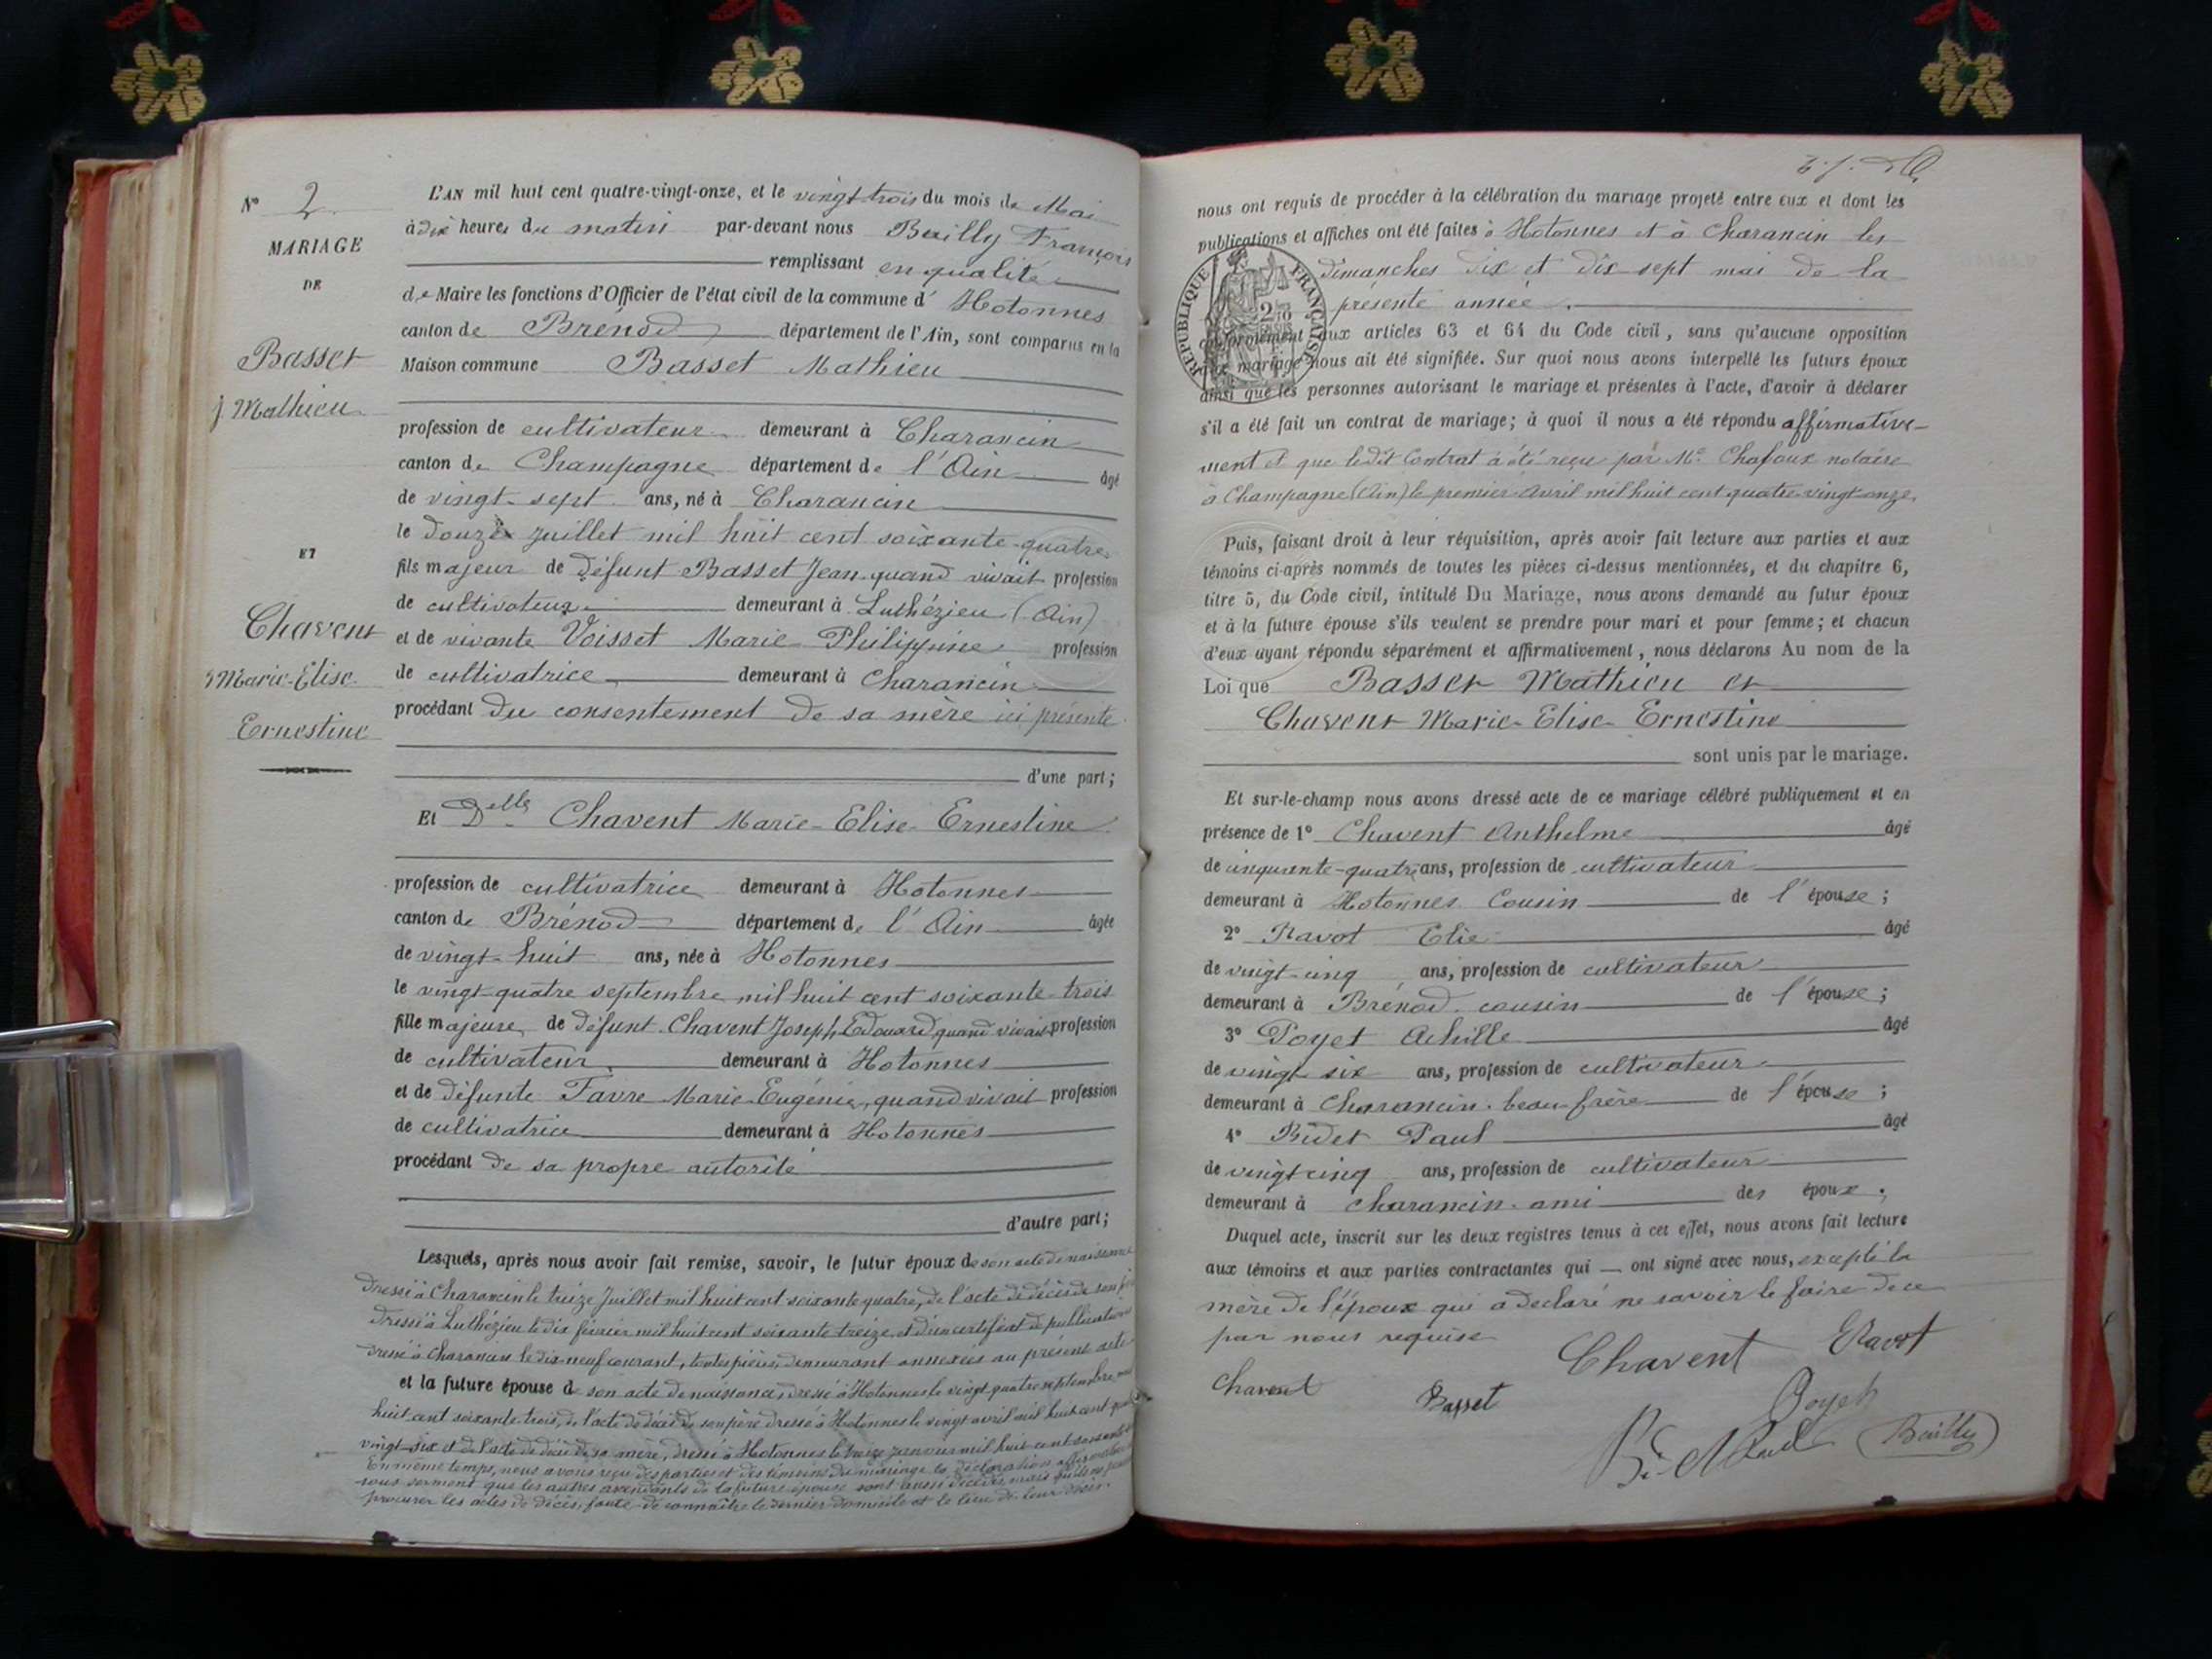 N° 2
MARIAGE
DE
Basset
Mathieu
ET
Chavent
Marie-Elise
Ernestine
L'AN mil huit cent quatre-vingt-onze, et le vingt trois du mois de Mai
à dix heures du matin par-devant nous Bailly François
remplissant en qualité
de Maire les fonctions d'Officier de l'état civil de la commune d' Hotonnes
canton de Brénod département de l'Ain, sont comparus en la
Maison commune Basset Mathieu
profession de cultivateur demeurant à Charancin
canton de Champagne département de l'Ain âgé
de vingt-sept ans, né à Charancin
le douze juillet mil huit cent soixante-quatre
fils majeur de défunt Basset Jean quand vivait profession
de cultivateur demeurant à Luthézieu (Ain)
et de vivante Voisset Marie-Philippine profession
de cultivatrice demeurant à Charancin
procédant du consentement de sa mère ici présente
d'une part;
Et Delle Chavent Marie-Elise-Ernestine
profession de cultivatrice demeurant à Hotonnes
canton de Brénod département de l'Ain âgée
de vingt-huit ans, née à Hotonnes
le vingt-quatre septembre mil huit cent soixante-trois
fille majeure de défunt Chavent Joseph Edouard quand vivait profession
de cultivateur demeurant à Hotonnes
et de défunte Favre Marie-Eugénie, quand vivait profession
de cultivatrice demeurant à Hotonnes
procédant de sa propre autorité
d'autre part;
Lesquels, après nous avoir fait remise, savoir, le futur époux de son acte de naissance
dressé à Charancin le treize Juillet mil huit cent soixante quatre, de l'acte de décès de son père
dressé à Luthézieu le dix février mil huit cent soixante treize, et d'un certificat de publications
dressé à Charancin le dix-neuf courant, toutes pièces demeurant annexées au présent acte
et la future épouse de son acte de naissance, dressé à Hotonnes le vingt-quatre septembre mil
huit cent soixante-trois, de l'acte de décès de son père dressé à Hotonnes le vingt avril mil huit cent quatre
vingt-six et de l'acte de décès de sa mère, dressé à Hotonnes le treize janvier mil huit cent soixante
En même temps, nous avons reçu des parties et des témoins du mariage la déclaration
sous serment que les autres ascendants de la future épouse sont aussi décédés mais qu'ils ne peuvent
procurer les actes de décès, faute de connaître le dernier domicile et le lieu de leur décès.
nous ont requis de procéder à la célébration du mariage projeté entre eux et dont les
publications et affiches ont été faites à Hotonnes et à Charancin les
dimanches dix et dix sept mai de la
présente année.
RÉPUBLIQUE FRANÇAISE
conformément aux articles 63 et 64 du Code civil, sans qu'aucune opposition
au mariage nous ait été signifiée. Sur quoi nous avons interpellé les futurs époux
ainsi que les personnes autorisant le mariage et présentes à l'acte, d'avoir à déclarer
s'il a été fait un contrat de mariage; à quoi il nous a été répondu affirmative-
ment et que ledit Contrat a été reçu par Me notaire
à Champagne (Ain) le premier Avril mil huit cent quatre-vingt-onze.
Puis, faisant droit à leur réquisition, après avoir fait lecture aux parties et aux
témoins ci-après nommés de toutes les pièces ci-dessus mentionnées, et du chapitre 6,
titre 5, du Code civil, intitulé Du Mariage, nous avons demandé au futur époux
et à la future épouse s'ils veulent se prendre pour mari et pour femme; et chacun
d'eux ayant répondu séparément et affirmativement, nous déclarons Au nom de la
Loi que Basset Mathieu et
Chavent Marie-Elise-Ernestine
sont unis par le mariage.
Et sur-le-champ nous avons dressé acte de ce mariage célébré publiquement et en
présence de 1° Chavent Anthelme âgé
de cinquante-quatre ans, profession de cultivateur
demeurant à Hotonnes Cousin de l'épouse;
2° Ravot Elie âgé
de vingt-cinq ans, profession de cultivateur
demeurant à Brénod cousin de l'épouse;
3° Poyet Achille âgé
de vingt six ans, profession de cultivateur
demeurant à Charancin beau-frère de l'épouse;
4° Bidet Paul âgé
de vingt cinq ans, profession de cultivateur
demeurant à Charancin ami des époux;
Duquel acte, inscrit sur les deux registres tenus à cet effet, nous avons fait lecture
aux témoins et aux parties contractantes qui ont signé avec nous, excepté la
mère de l'époux qui a déclaré ne savoir le faire de ce
par nous requise
Chavent Ravot
Chavent Basset Poyet
Bidet Paul Bailly